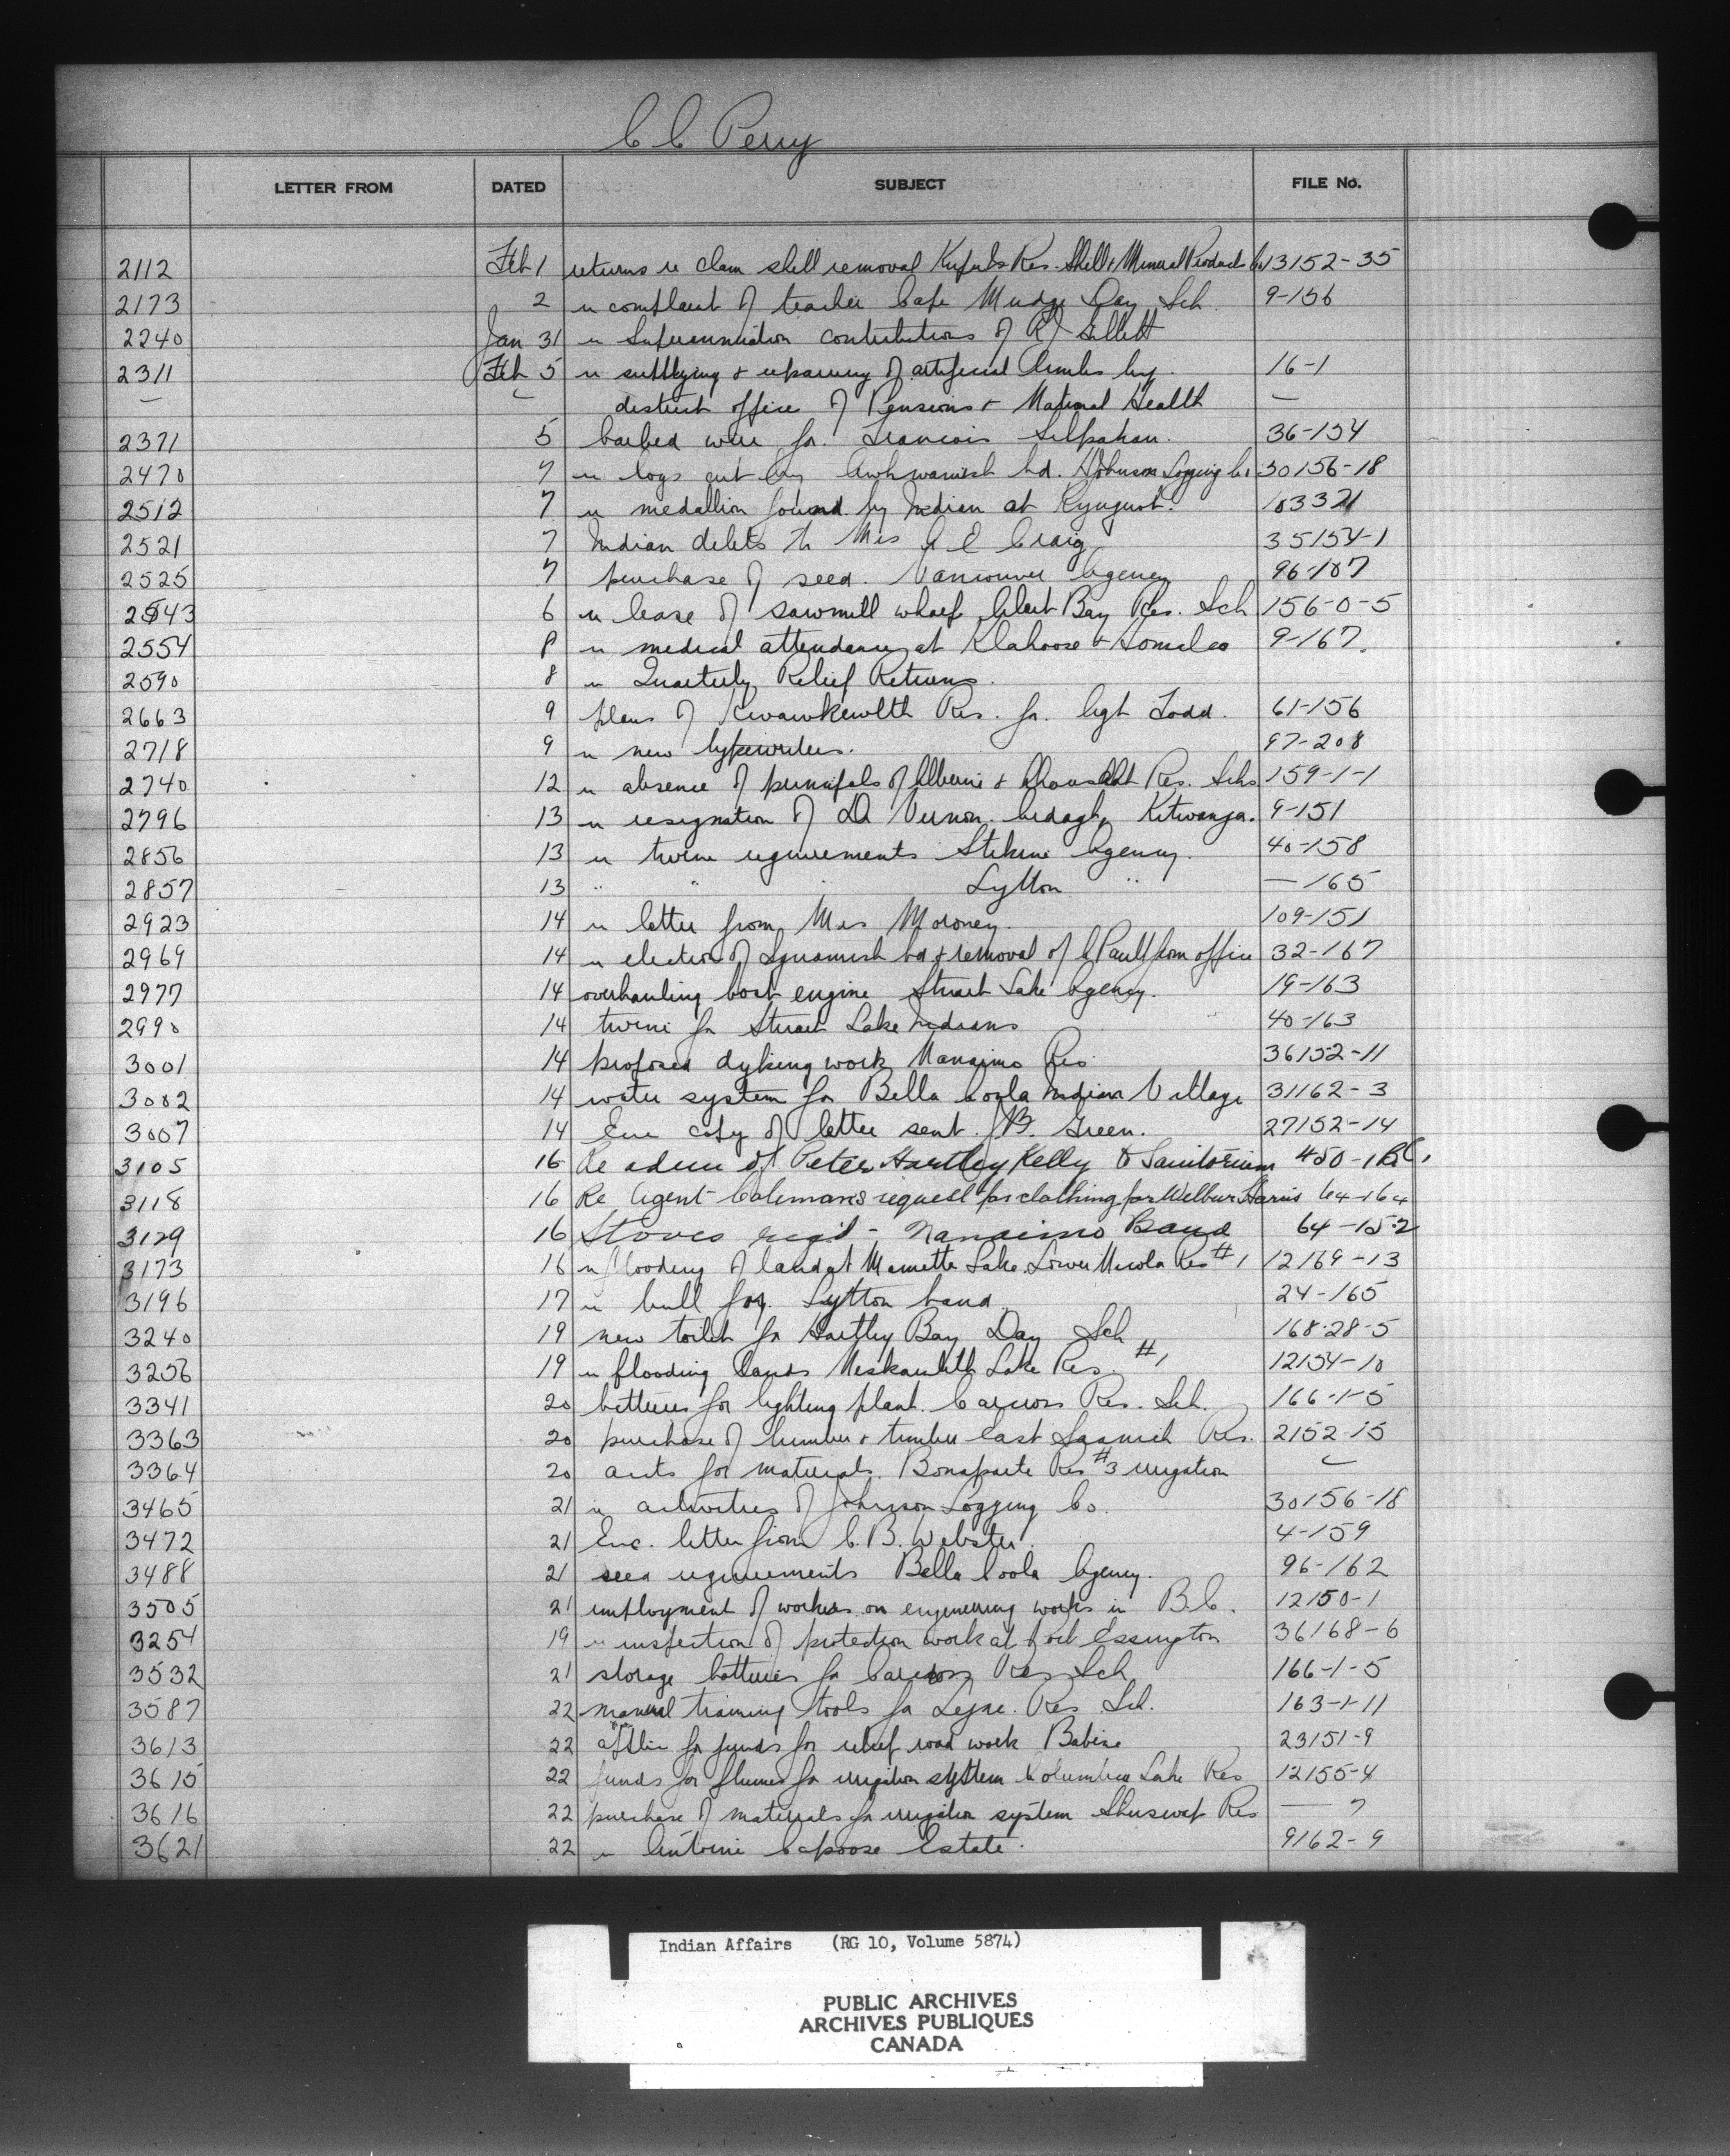 C C Perry
LETTER FROM DATED SUBJECT FILE No.
2112 Feb 1 returns re clam shell removal Res. Shell & Mineral Products Co 13152-35
2173 2 re complaint of teacher Cape Mudge Day Sch. 9-156
2240 Jan 31 re Superannuation contributions of R J Gillett
2311 Feb 5 re supplying & repairing of artificial limbs by 16-1
district office of Pensions & National Health
2371 5 barbed wire for Francois Selpahan. 36-154
2470 7 re logs cut by bd. Johnson Logging Co. 30156-18
2512 7 re medallion found by Indian at Kyuquot. 103321
2521 7 Indian debts to Mrs A E Craig 35154-1
2525 7 purchase of seed. Vancouver Agency 96-167
2543 6 re lease of sawmill wharf Alert Bay Res. Sch 156-0-5
2554 8 re medical attendance at Klahoose & Homalco 9-167.
2590 8 re Quarterly Relief Returns.
2663 9 plans of Kwawkewlth Res. for Agt Todd. 61-156
2718 9 re new typewriters. 97-208
2740 12 re absence of principals of Alberni & Ahousaht Res. Schs 159-1-1
2796 13 re resignation of Dr Vernon. Kitwanga. 9-151
2856 13 re twine requirements Stikine Agency. 40-158
2857 13 " " Lytton " — 165
2923 14 re letter from Mrs Moroney. 109-151
2969 14 re election of Squamish bd & removal of A Paull from office 32-167
2977 14 overhauling boat engine Stuart Lake Agency. 19-163
2990 14 twine for Stuart Lake Indians 40-163
3001 14 proposed dyking work Nanaimo Res. 36152-11
3002 14 water system for Bella Coola Indian Village 31162-3
3007 14 Enc copy of letter sent J.B. Green. 27152-14
3105 16 Re adm of Peter Hartley Kelly to Sanitorium 450-1 B.C.
3118 16 Re Agent Coleman's request for clothing for Wilbur Harris 64-164
3129 16 Stoves reqd - Nanaimo Band 64-152
3173 16 re flooding of land at Mamette Lake Lower Nicola Res #1 12169-13
3196 17 re bull for Lytton band. 24-165
3240 19 new toilet for Hartley Bay Day Sch 168-28-5
3256 19 re flooding lands Neskainlith Lake Res. #1 12154-10
3341 20 batteries for lighting plant. Carcross Res. Sch. 166-1-5
3363 20 purchase of lumber & timber East Saanich Res. 2152-15
3364 20 accts for materials. Bonaparte Res #3 irrigation
3465 21 re activities of Johnson Logging Co. 30156-18
3472 21 Enc. letter from C.B. Webster. 4-159
3488 21 seed requirements Bella Coola Agency. 96-162
3505 21 employment of workers on engineering works in B.C. 12150-1
3254 19 re inspection of protection work at Port Essington 36168-6
3532 21 storage batteries for Carcross Res Sch 166-1-5
3587 22 manual training tools for Lejac Res Sch. 163-1-11
3613 22 applic for funds for relief road work Babine 23151-9
3615 22 funds for flumes for irrigation system Columbia Lake Res 12155-4
3616 22 purchase of materials for irrigation system Shuswap Res — 7
3621 22 re Antoine Capoose Estate. 9162-9
Indian Affairs (RG 10, Volume 5874)
PUBLIC ARCHIVES
ARCHIVES PUBLIQUES
CANADA